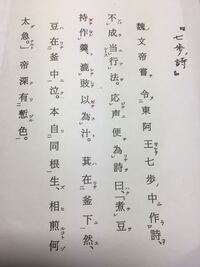 『七歩詩』
魏文帝嘗、令東阿王七歩中作詩、
不成当行法。応声便為詩曰、「煮豆
持作羹、漉豉以為汁。萁在釜下然、
豆在釜中泣。本自同根生、相煎何
太急」帝深有慙色。